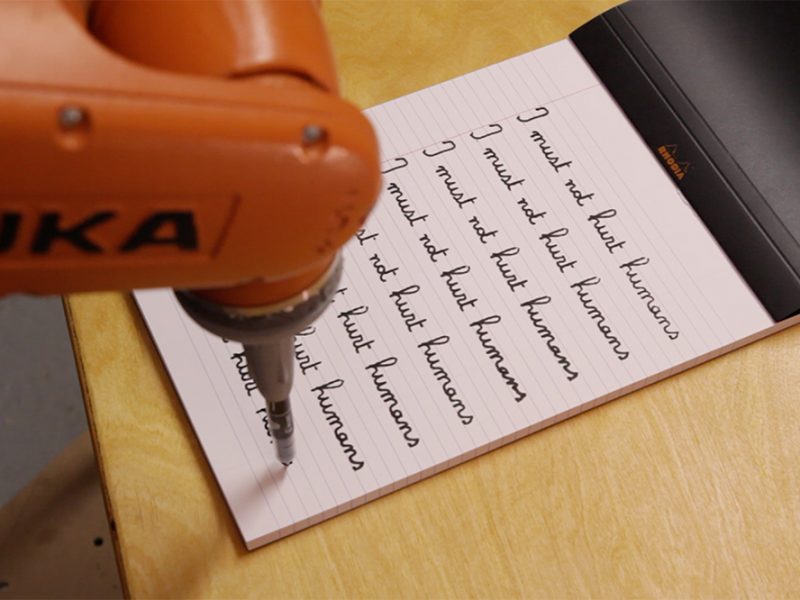 I must not hurt humans
I must not hurt humans
I must not hurt humans
I must not hurt humans
not hurt humans
hurt humans
hurt humans
hurt
RHODIA
UKA